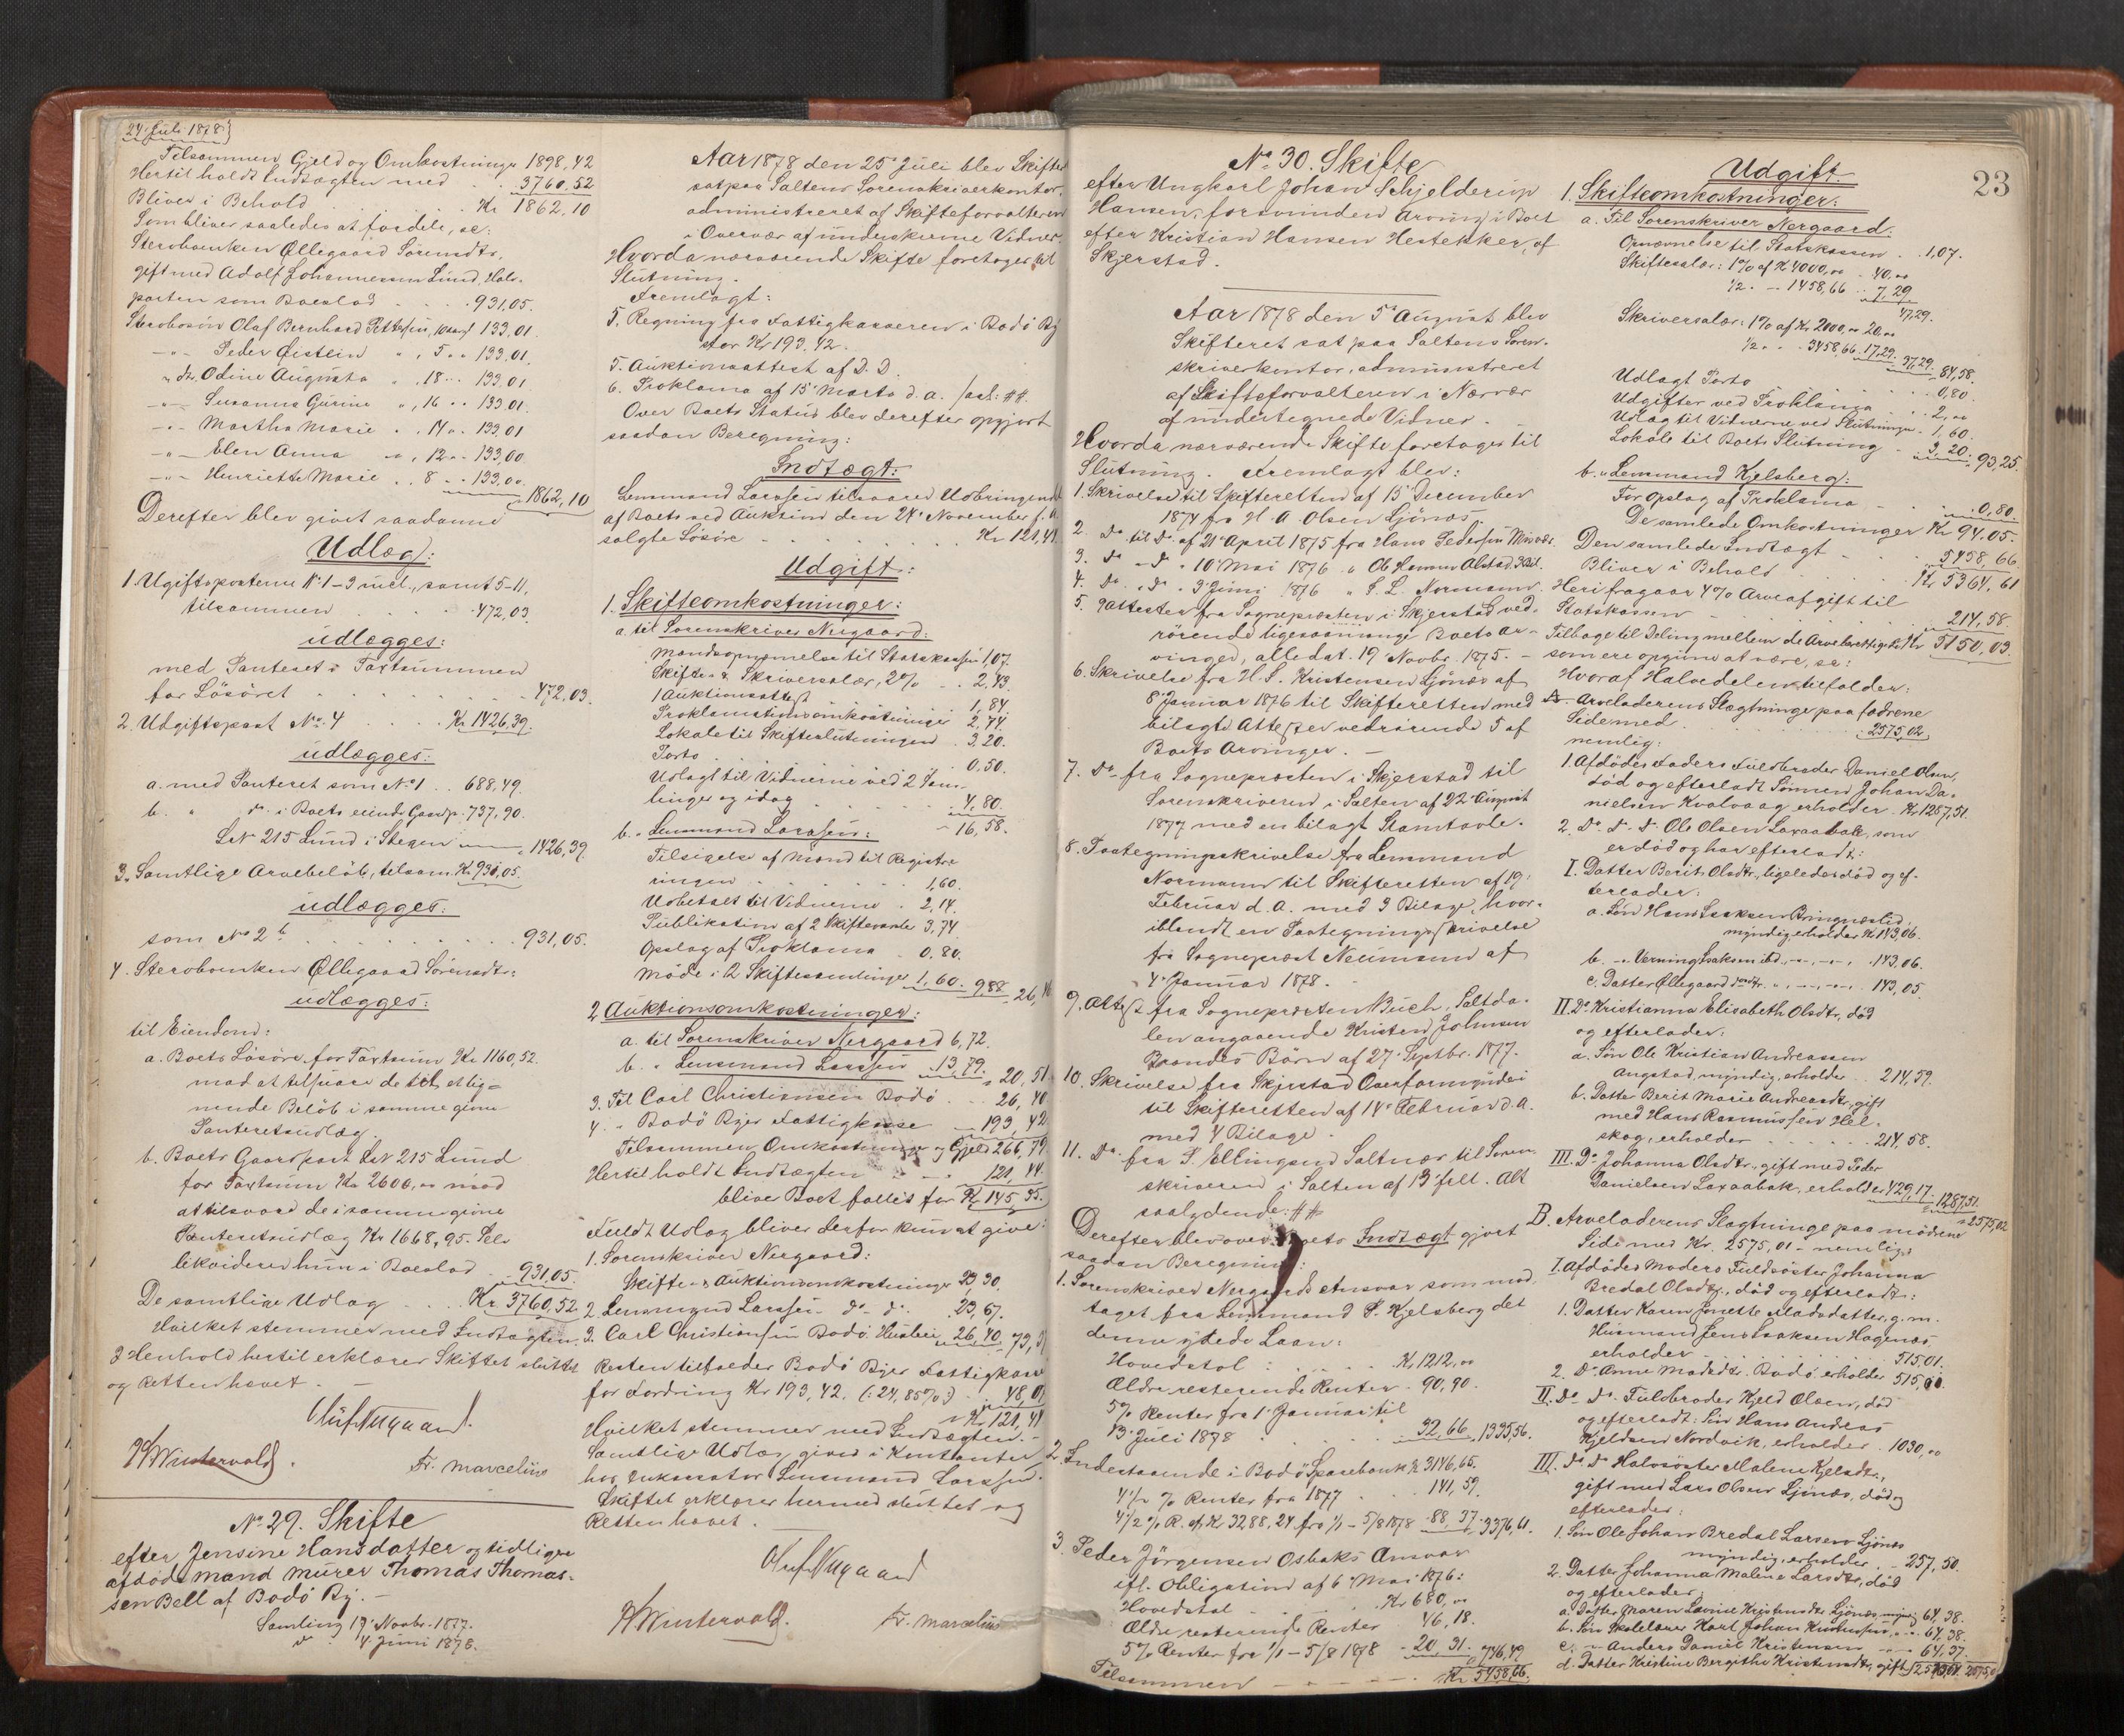 24 Juli 1878}
Tilsammen Gjeld og Omkostninger 1898,42
Hertil holdt Indtægten med . . 3760,52
Bliver i Behold . . . . . Kr 1862,10
Som bliver saaledes at fordele, sc:
Sterboenken Ellegaard Sörensdtr,
gift med Adolf Johannessen Lund, Halv-
parten som Boeslod . . . . 931,05.
Sterbosön Olaf Bernhard Pettersen, 133,01
-"- Peder Eistein ", 5 " " 133,01.
" dr. Odine Augusta ", 18 " " 133,01
-"- Susanna Gurine ", 16 " " 133,01.
-"- Martha Marie " , 14 " . 133,01
-"- Elen Anna ", 12 " " 133,00
-"- Henriette Marie . . 8 " " 133,00.
1862,10
Derefter blev givet saadanne
Udlæg:
1. Ugiftsposterne No 1-3 incl., samt 5-11,
tilsammen . . . . . 472,03.
udlægges:
med Panteret i Taxtsummen
for Lösöret . . . . . 472,03.
2. Udgiftspost No. 4 . . . . Kr. 1426,39.
udlægges:
a. med Panteret som No 1 . . 688,49.
b. " do. i Boets eiende Gaardp. 737,90.
LN 215 Lund i Stegen 1426,39.
3. Samtlige Arvebelöb, tilsam. Kr. 931,05.
udlægges:
som No 2 b . . . . . . 931,05.
4. Sterboenken Ellegaard Sörensdtr:
udlægges:
til Eiendom:
a. Boets Lösöre for Taxtsum Kr 1160,52.
mod at tilsvare de til et lig-
nende Belöb i samme givne
Panteretsudlæg.
b. Boets Gaardpart LN 215 Lund
for Taxtsum Kr 2600,00 mod
at tilsvare de i samme givne
Panteretsudlæg Kr 1668,95. Selv
likviderer hun i Boeslod . . 931,05.
De samtlige Udlæg . . . Kr. 3760,52
Hvilket stemmer med Indtægten.
I Henhold hertil erklæres Skiftet sluttet
og Retten hævet. -
H Wintervold. Fr. Marcelius
No 29. Skifte
efter Jensine Hansdatter og tidligere
afdöde mand murer Thomas Thomas-
sen Bell af Bodö By. -
Samling 19 Novbr. 1877.
do. 4 Juni 1878.
Aar 1878 den 25 Juli blev Skifteret
sat paa Saltens Sorenskriverkontor,
administreret af Skifteforvalteren
i Overvær af underskrevne Vidner.
Hvorda nærværende Skifte foretoges til
Slutning.
Fremlagt:
5. Regning fra Fattigkassereren i Bodö By
stor Kr 193,42.
5. Auktionsattest af D.D.
6. Proklama af 15 Marts d.a.
Over Boets Status blev derefter opgjort
saadan Beregning:
Indtægt:
Lensmand Larssen tilsvarer Udbringendet
af Boets ved Auktion den 24 November f.A.
solgte Lösöre . . . . . . . Kr 121,44
Udgift:
1. Skifteomkostninger:
a. til Sorenskriver Nergaard:
Mandsopnævnelse til Statskassen 1,07
Skifte- & Skriversalær, 2% . . 2,43.
1 Auktionsattest . . 1,84.
Proklamationsomkostninger 2,74.
Lokale til Skifteslutningen . 3,20.
Porto . . . . 0,50.
Udlagt til Vidnerne ved 2 Sam-
linger og idag . . . . 4,80.
16,58.
b. " Lensmand Larssen:
Tilsigelse af Mænd til Registre-
ringen . . . . 1,60.
Udbetalt til Vidnerne . 2,14.
Publikation af 2 Skiftesamler 3,74
Opslag af Proklama . 0,80.
Möde i 2 Skiftesamlinger 1,60. 9,88 26,46
2. Auktionsomkostninger:
a. til Sorenskriver Nergaard 6,72.
b. " Lensmand Larssen . 13,79. " 20,51
3. Til Carl Christiansen Bodö . . 26,40
4. " Bodö Byes Fattigkasse 193,42
Tilsammen Omkostninger og Gjeld 266,79
Hertil holdt Indtægten 121,44
bliver Boet fallit for Kr 145,35.
Fuldt Udlæg bliver derfor kun at give:
1. Sorenskriver Nergaard:
Skifte- & Auktionsomkostninger 23,30.
2. Lensmand Larssen - do - do. . 23,67.
3. Carl Christiansen Bodö, Husleie 26,40. 73,37
Resten tilfalder Bodö Byes Fattigkasse
for Fordring Kr 193,42. (: 24,85%:) . 48,07
Kr. 121,44
Hvilket stemmer med Indtægten. -
Samtlige Udlæg gives i Kontanter
hos Inkassator Lensmand Larssen.
Skiftet erklæres hermed sluttet og
Retten hævet.
H Wintervold. Fr. Marcelius
23
No 30. Skifte
efter Ungkarl Johan Schjelderup
Hansen, forsvunden Arving i Boet
efter Kristian Hansen Hestekker, af
Skjerstad.
Aar 1878 den 5 August blev
Skifteret sat paa Saltens Soren-
skriverkontor, administreret
af Skifteforvalteren i Nærvær
af undertegnede Vidner.
Hvorda nærværende Skifte foretoges til
Slutning. Fremlagt blev:
1. Skrivelse til Skifteretten af 15 December
1874 fra H. A. Olsen Ljönæs
2. Do til do. af 21 April 1875 fra Hans Pedersen Misvær.
3. do - do " 10 Mai 1876 "
4. do. " do. " 3 Juni 1876 " Normann.
5. 9 attester fra Sognepræsten i Skjerstad ved-
rörende ligesaamange Boets Ar-
vinger, alle dat. 19 Novbr. 1875. -
6. Skrivelse fra H. S. Kristensen Ljönæs af
8 Januar 1876 til Skifteretten med
bilagte Attester vedrörende 5 af
Boets Arvinger. -
7. Do. fra Sognepræsten i Skjerstad til
Sorenskriveren i Salten af 22 August
1877 med en bilagt Stamtavle.
8. Paategningsskrivelse fra Lensmand
Normann til Skifteretten af 19
Februar d.A. med 3 Bilage, hvor-
iblandt en Paategningsskrivelse
fra Sognepræst Neumann af
4 Januar 1878.
9. Attest fra Sognepræsten Buch, Saltda-
len angaaende Kristen Johnsen
Brandes Börn af 27 Septbr. 1877.
10. Skrivelse fra Skjerstad Overformynderi
til Skifteretten af 14 Februar d.A.
med 4 Bilage.
11. Do. fra P. Ellingsen Saltnæs til Soren-
skriveren i Salten af 13 . Alt
saalydende: ##
Derefter blev over Boets Indtægt gjort
saadan Beregning:
1. Sorenskriver Nergaards Ansvar som mod-
taget fra Lensmand P. Kjelsberg det
denne ydede Laan:
Hovedstol : . . . . . Kr 1212,00
Ældre resterende Renter . 90,90.
5% Renter fra 1 Januar til
13 Juli 1878 . . . 32,66. 1335,56.
2. Indestaaende i Bodö Sparebank Kr 3146,65.
4½ % Renter fra 1877 . . 141,59.
4½ % R. af Kr 3288,24 fra 1/1 - 5/8 1878 88,37. 3376,61.
3. Peder Jörgensen Osbaks Ansvar
ifl. Obligation af 6 Mai 1876:
Hovedstol . . . . Kr 680,00
Ældre resterende Renter 46,18.
5% Renter fra 1/1 - 5/8 1878 . 20,31. 746,49
Tilsammen . . . . Kr 5458,66.
Udgift.
1. Skifteomkostninger:
a. Til Sorenskriver Nergaard:
Opnævnelse til Statskassen . 1,07.
Skiftesalær: 1% af Kr 4000,00 . 40,00
½ " - 1458,66 . 7,29
47,29.
Skriversalær: 1% af Kr 2000,00 20,00
½ " . 3458,66. 17,29. 37,29. 84,58.
Udlagt Porto . . . 0,80.
Udgifter ved Proklama . . 2,00
Udlæg til Vidnerne ved Slutningen . 1,60.
Lokale til Boets Slutning . 3,20. 93,25.
b. " Lensmand Kjelsberg:
For Opslag af Proklama . . 0,80.
De samlede Omkostninger Kr 94,05.
Den samlede Indtægt . . 5458,66.
Bliver i Behold . . . . Kr 5364,61
Heri fragaar 4% Arveafgift til
Statskassen . . . . 214,58.
Tilbage til Deling mellem de Arveberettigede Kr 5150,03.
som ere opgivne at være, sc:
Hvoraf Halvdelen tilfalder:
A. Arveladerens Slægtninge paa fædrene
Side med . . . . . 2575,02.
nemlig:
1. Afdödes Faders Fuldbroder Daniel Olsen,
död og efterladt Sönnen Johan Da-
nielsen Kvalvaag, erholder . Kr 1287,51.
2. Do. do. do. Ole Olsen Laxaabak, som
er död og har efterladt:
I. Datter Berit Olsdtr., ligeledes död og ef-
terlader:
a. Sön Hans Isaksen
myndig, erholder Kr 143,06.
b. -"- Isaksen ibd., -"-, -"-, . 143,06.
c. Datter Ellegaard " , -"-, -"- . 143,05.
II. Do Kristianna Elisabeth Olsdtr, död
og efterlader:
a. Sön Ole Kristian Andreassen
Angstad, myndig, erholder . . 214,59.
b. Datter Berit Marie Andreasdtr, gift
med Hans Rasmussen Hel-
skog, erholder . . . . . . 214,58.
III. Do Johanna Olsdtr., gift med Peder
Danielsen Laxaabak, erholder 429,17. 1287,51.
2575,02
B. Arveladerens Slægtninge paa mödrene
Side med Kr. 2575,01 - nemlig:
I. Afdödes Moders Fuldsöster Johanna
Bredal Olsdtr, död og efterladt:
1. Datter Karen Jonette Madsdatter, g. m.
Husmand Jens Isaksen Hagenæs
erholder . . . . . . 515,01.
2. Do Anne Madsdtr. Bodö erholder 515,00.
II. Do. do. Fuldbroder Kjeld Olsen, död
og efterladt: Sön Hans Andreas
Kjeldsen Nordvik, erholder . 1030,00
III. Do do Halvsöster Malene Kjelsdtr.,
gift med Lars Olsen Ljönæs, död og
efterlader:
1. Sön Ole Johan Bredal Larsen Ljönæs
myndig, erholder . . 257,50.
2. Datter Johanna Malene Larsdtr, död
og efterlader:
a. Datter Maren Lovise Kristensdtr Ljönæs, myndig 64,38.
b. Sön Skolelærer Karl Johan Kristensen, " - 64,38.
c. -"- Anders Daniel Kristensen -"- 64,37.
d. Datter Kristine Bergithe Kristensdtr, gift